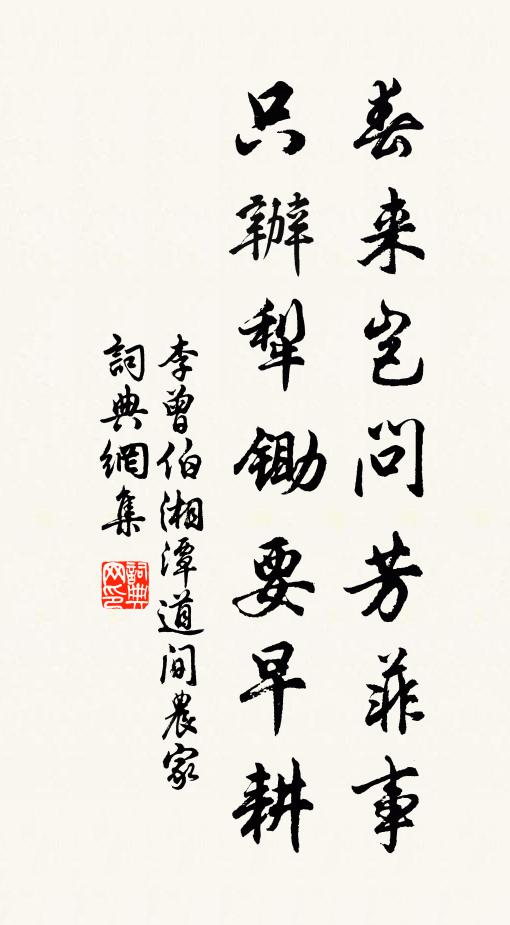 春来岂问芳菲事
只辦犁鋤要早耕
李曾伯湘潭道間農家
詞典網集
詞典網印